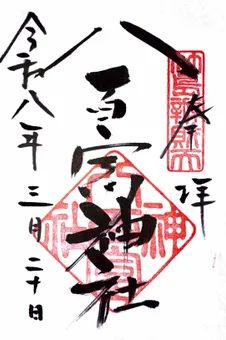 奉拝
八百富神社
令和八年三月二十日